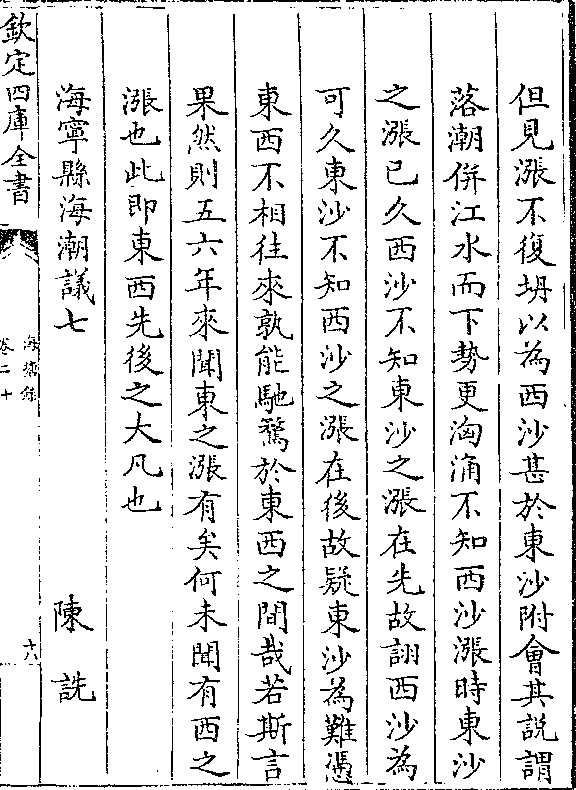 但見漲不復坍以為西沙甚於東沙附會其説謂
落潮併江水而下勢更洶湧不知西沙漲時東沙
之漲已久西沙不知東沙之漲在先故詡西沙為
可久東沙不知西沙之漲在後故疑東沙為難憑
東西不相往來孰能馳騖於東西之間哉若斯言
果然則五六年來聞東之漲有矣何未聞有西之
漲也此即東西先後之大凡也
海寧縣海潮議七　陳詵
欽定四庫全書
海塘錄
卷二十
十八